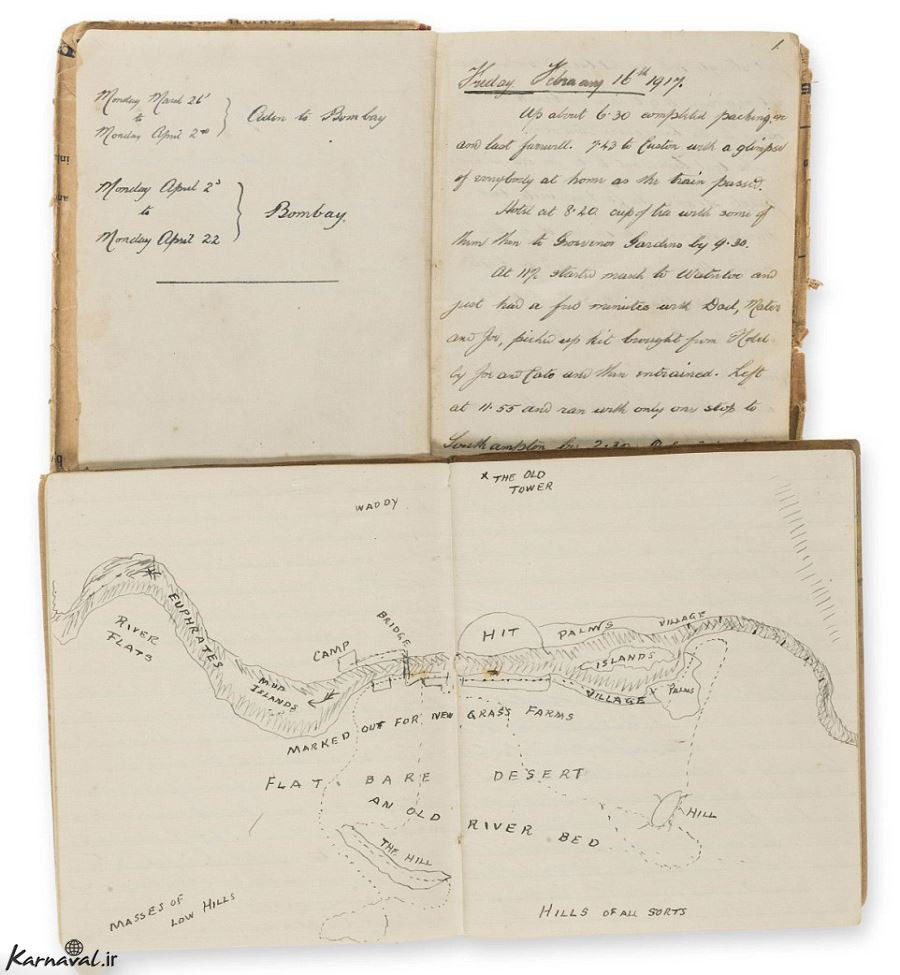 Monday March 26
to
Monday April 2nd
Aden to Bombay
Monday April 2
to
Monday April 22
Bombay.
1.
Friday February 16th 1917.
Up about 6.30 completed packing
and last farewell. 7.43 to Euston with a glimpse
of everybody at home as the train passed.
Hotel at 8.20. cup of tea with some of
them then to Grosvenor Gardens by 9.30.
At started march to Waterloo and
just had a few minutes with Dad, Mater
and Joe, picked up kit brought from Hotel
by Joe and and then entrained. Left
at 11.55 and ran with only one stop to
Southampton by 2.30.
WADDY
x THE OLD
TOWER
EUPHRATES
RIVER
FLATS
MUD
ISLANDS
CAMP
BRIDGE
HIT
PALMS
VILLAGE
ISLANDS
VILLAGE
PALMS
MARKED OUT FOR NEW GRASS FARMS
FLAT BARE DESERT
AN OLD RIVER BED
THE HILL
HILL
MASSES OF
LOW HILLS
HILLS OF ALL SORTS
Karnaval.ir